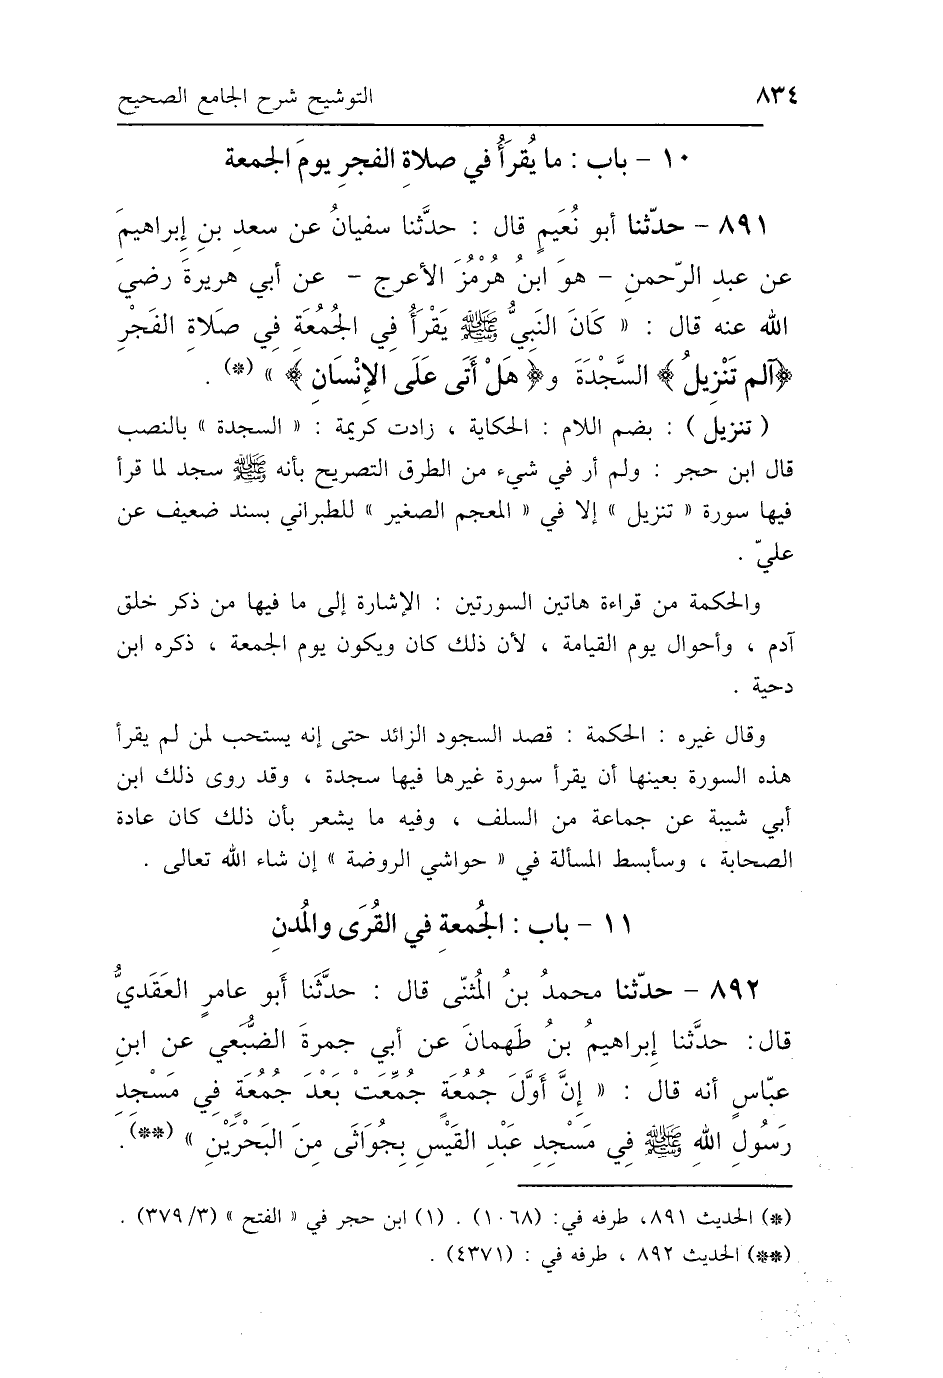 ٨٣٤ التوشيح شرح الجامع الصحيح
١٠ - باب : ما يُقرَأُ في صلاةِ الفجرِ يومَ الجمعة
٨٩١ - حدّثنا أبو نُعَيمٍ قال : حدَّثنا سفيانُ عن سعدِ بنِ إبراهيمَ
عن عبدِ الرّحمنِ - هوَ ابنُ هُرْمُزَ الأعرج - عن أبي هريرةَ رضيَ
الله عنه قال : « كَانَ النَبيُّ ﷺ يَقْرَأُ فِي الجُمُعَةِ فِي صَلَاةِ الفَجْرِ
﴿آلم تَنْزِيلُ﴾ السَّجْدَةَ و﴿ هَلْ أَتَى عَلَى الإِنْسَانِ ﴾ » (*) .
( تنزيل ) : بضم اللام : الحكاية ، زادت كريمة : « السجدة » بالنصب
قال ابن حجر : ولم أر في شيء من الطرق التصريح بأنه ﷺ سجد لما قرأ
فيها سورة « تنزيل » إلا في « المعجم الصغير » للطبراني بسند ضعيف عن
عليّ .
والحكمة من قراءة هاتين السورتين : الإشارة إلى ما فيها من ذكر خلق
آدم ، وأحوال يوم القيامة ، لأن ذلك كان ويكون يوم الجمعة ، ذكره ابن
دحية .
وقال غيره : الحكمة : قصد السجود الزائد حتى إنه يستحب لمن لم يقرأ
هذه السورة بعينها أن يقرأ سورة غيرها فيها سجدة ، وقد روى ذلك ابن
أبي شيبة عن جماعة من السلف ، وفيه ما يشعر بأن ذلك كان عادة
الصحابة ، وسأبسط المسألة في « حواشي الروضة » إن شاء الله تعالى .
١١ - باب : الجُمعةِ في القُرَى والمُدنِ
٨٩٢ - حدّثنا محمدُ بنُ المُثنّى قال : حدَّثَنا أَبو عامرٍ العَقَديُّ
قال: حدَّثنا إبراهيمُ بنُ طَهمانَ عن أبي جمرةَ الضُّبَعي عن ابنِ
عبّاسٍ أنه قال : « إِنَّ أَوَّلَ جُمُعَةٍ جُمِّعَتْ بَعْدَ جُمُعَةٍ فِي مَسْجِدِ
رَسُولِ اللهِ ﷺ فِي مَسْجِدِ عَبْدِ القَيْسِ بِجُوَاثَى مِنَ البَحْرَيْنِ » (**).
(*) الحديث ٨٩١، طرفه في: (١٠٦٨) . (١) ابن حجر في « الفتح » (٣/ ٣٧٩) .
(**) الحديث ٨٩٢ ، طرفه في : (٤٣٧١) .